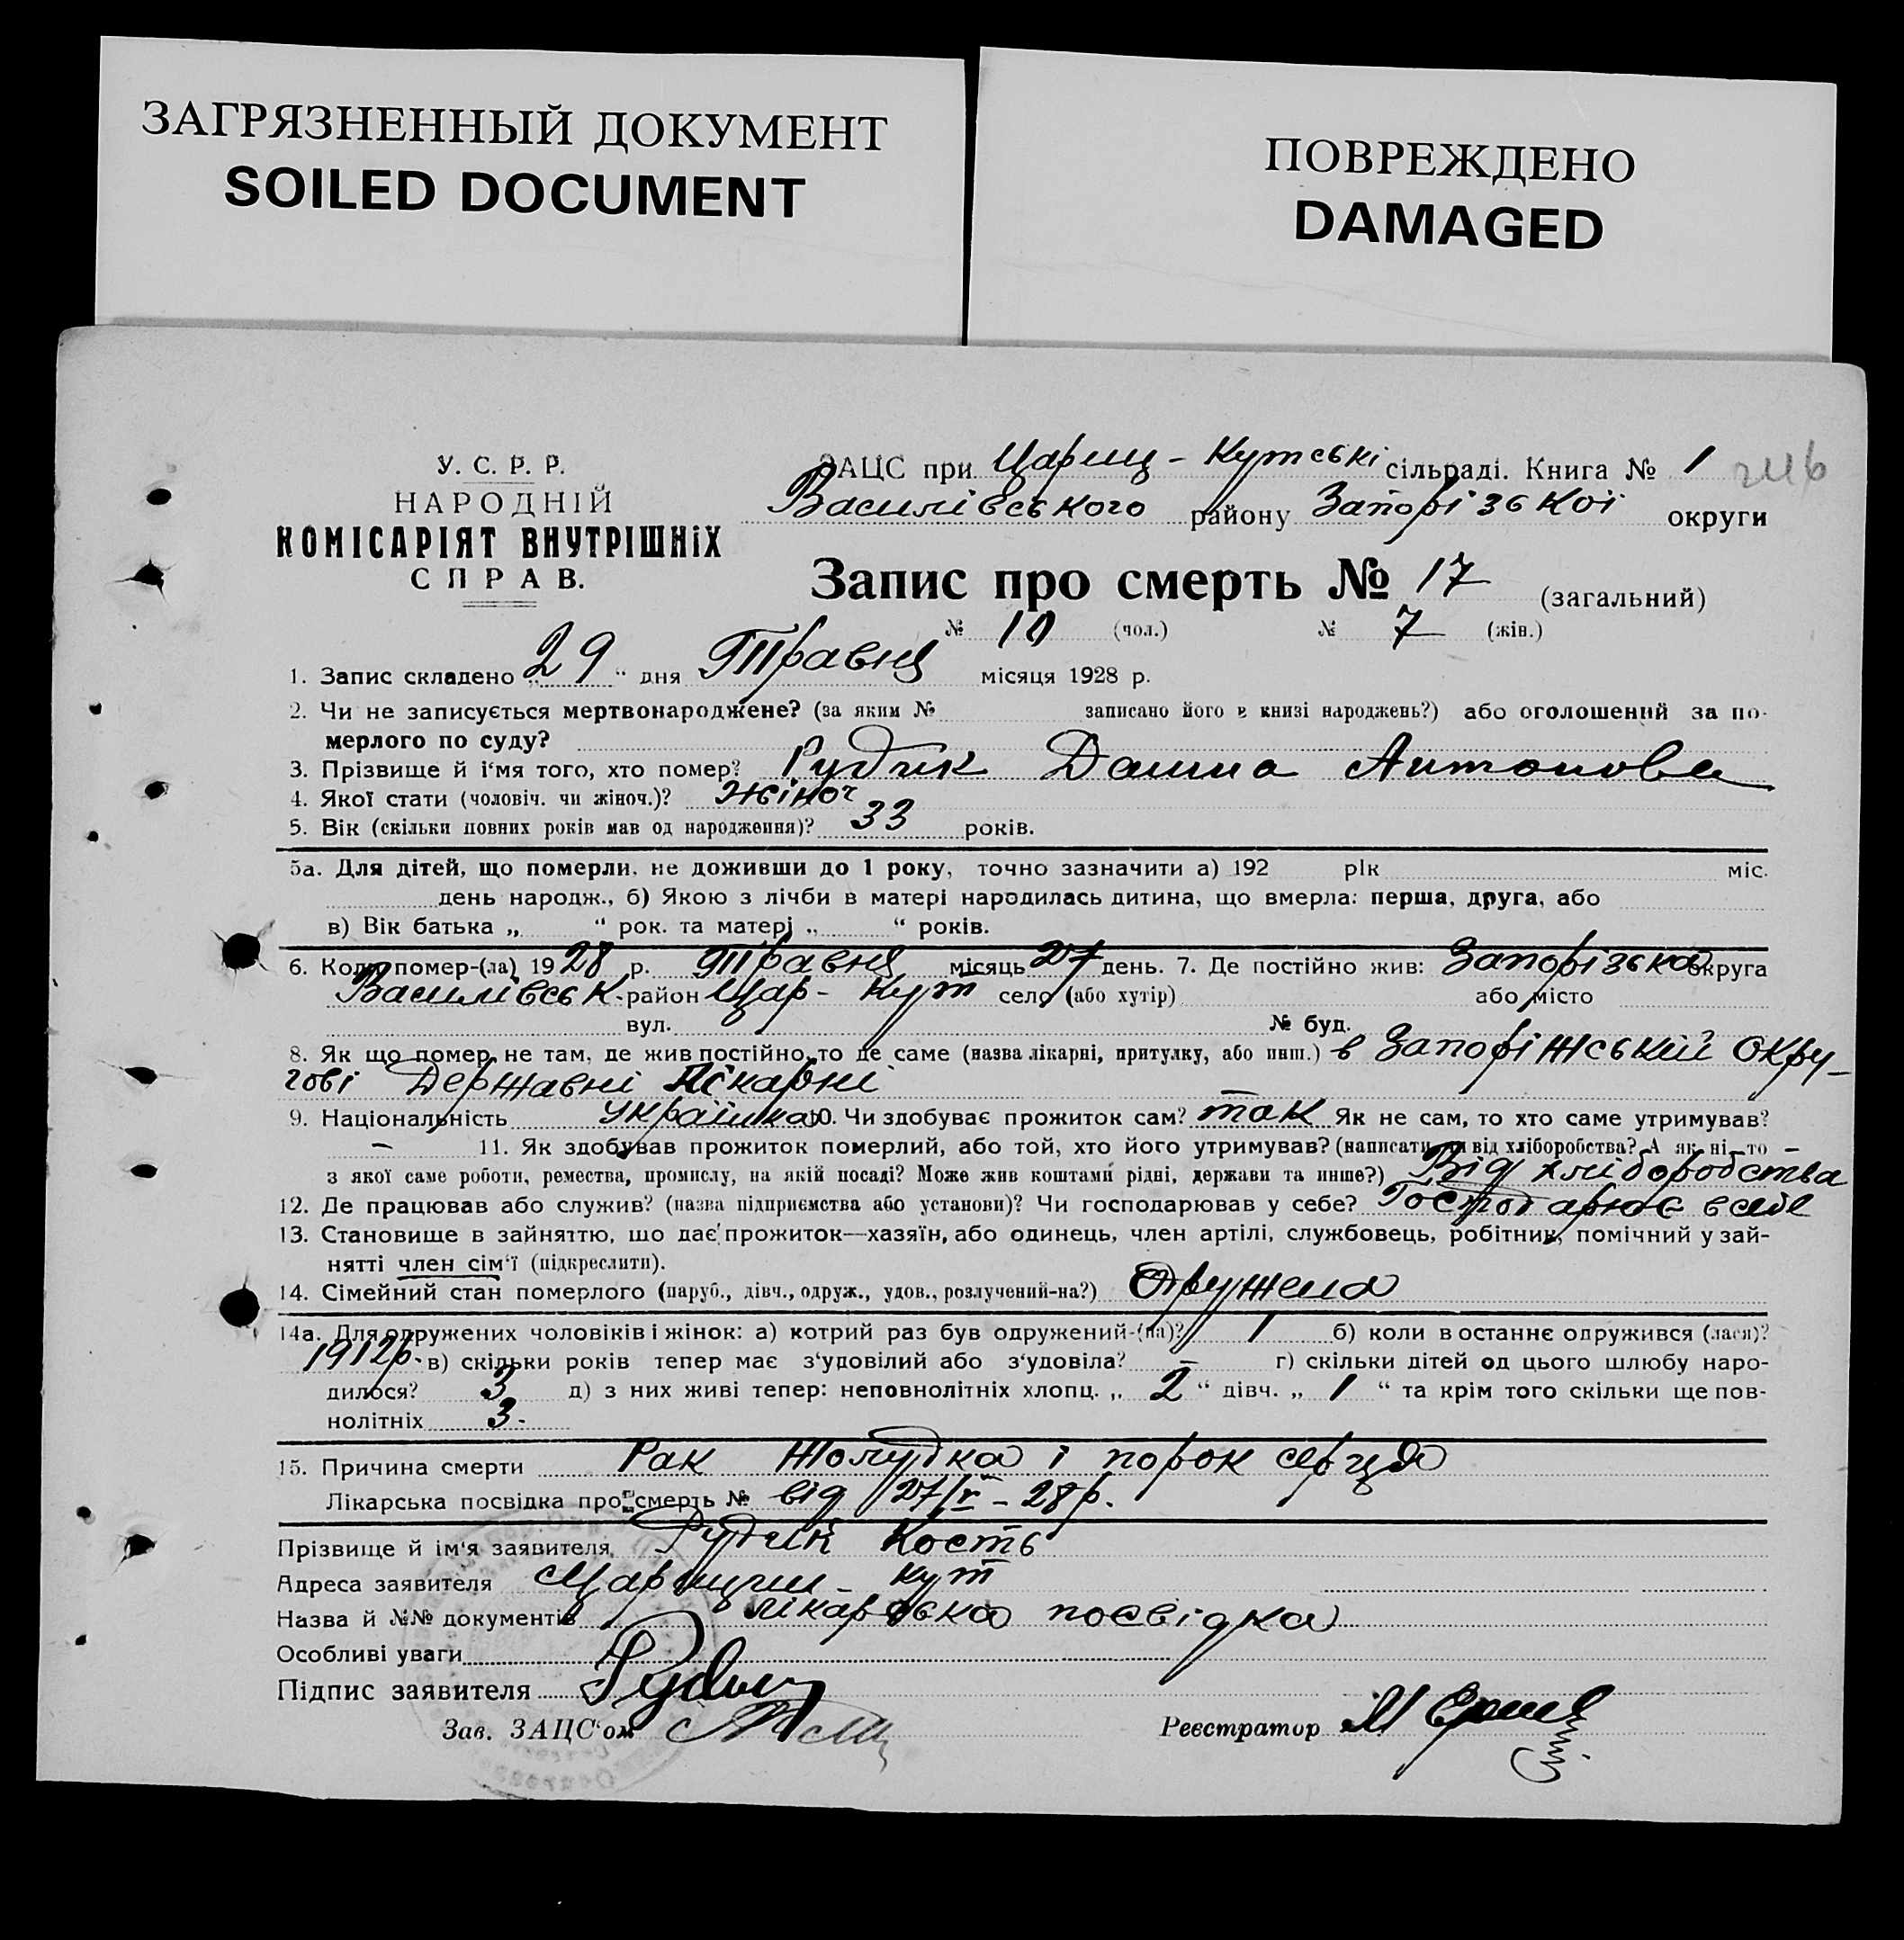 ЗАГРЯЗНЕННЫЙ ДОКУМЕНТ
SOILED DOCUMENT
ПОВРЕЖДЕНО
DAMAGED
У. С. Р. Р.
НАРОДНІЙ
КОМІСАРІЯТ ВНУТРІШНІХ
СПРАВ.
ЗАЦС при Цариц-Кутські сільраді. Книга № 1
Василівського району Запорізької округи
Запис про смерть № 17 (загальний)
№ 10 (чол.) № 7 (жін.)
1. Запис складено „29“ дня Травня місяця 1928 р.
2. Чи не записується мертвонароджене? (за яким № записано його в книзі народжень?) або оголошений за по-
мерлого по суду?
3. Прізвище й і'мя того, хто помер? Рудик Домна Антонова
4. Якої стати (чоловіч. чи жіноч.)? Жіноч
5. Вік (скільки повних років мав од народження)? 33 років.
5а. Для дітей, що померли, не доживши до 1 року, точно зазначити а) 192 рік міс.
день народж., б) Якою з лічби в матері народилась дитина, що вмерла: перша, друга, або
в) Вік батька „ “ рок. та матері „ “ років.
6. Коли помер-(ла) 1928 р. Травня місяць 27 день. 7. Де постійно жив: Запорізька округа
Василівськ. район Цар-Кут село (або хутір) або місто
вул. № буд.
8. Як що помер не там, де жив постійно, то де саме (назва лікарні, притулку, або инш.) в Запоріжській окру-
гові Державні лікарні
9. Національність українка 10. Чи здобуває прожиток сам? так Як не сам, то хто саме утримував?
— 11. Як здобував прожиток померлий, або той, хто його утримував? (написати чи від хліборобства? А як ні—то —
з якої саме роботи, ремества, промислу, на якій посаді? Може жив коштами рідні, держави та инше?) Від хліборобства
12. Де працював або служив? (назва підприємства або установи)? Чи господарював у себе? Господарює в себе
13. Становище в зайняттю, що дає прожиток—хазяїн, або одинець, член артілі, службовець, робітник, помічний у зай-
нятті член сім'ї (підкреслити).
14. Сімейний стан померлого (паруб., дівч., одруж., удов., розлучений-на?) Одружена
14а. Для одружених чоловіків і жінок: а) котрий раз був одружений-(на)? 1 б) коли в останнє одружився (лася)?
1912р. в) скільки років тепер має з'удовілий або з'удовіла? — г) скільки дітей од цього шлюбу наро-
дилося? 3 д) з них живі тепер: неповнолітніх хлопц. „ 2 “ дівч. „ 1 “ та крім того скільки ще пов-
нолітніх 3.
15. Причина смерти Рак жолудка і порок серця
Лікарська посвідка про смерть № від 27/V-28р.
Прізвище й ім'я заявителя Рудик Кость
Адреса заявителя Царицин-Кут
Назва й №№ документів лікарська посвідка
Особливі уваги
Підпис заявителя Рудик
Зав. ЗАЦС'ом
Реєстратор